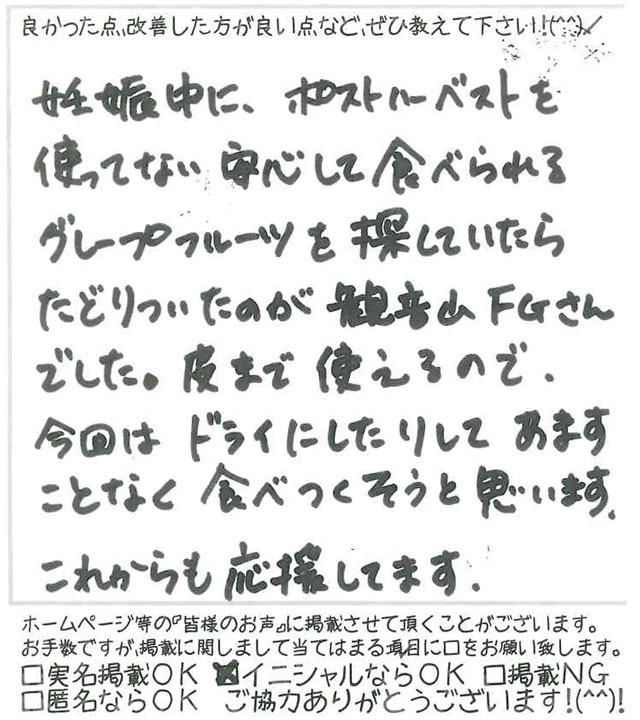 良かった点、改善した方が良い点など、ぜひ教えて下さい!(^^)/
妊娠中に、ポストハーベストを
使ってない安心して食べられる
グレープフルーツを探していたら
たどりついたのが観音山FGさん
でした。皮まで使えるので、
今回はドライにしたりしてあます
ことなく食べつくそうと思います。
これからも応援してます。
ホームページ等の『皆様のお声』に掲載させて頂くことがございます。
お手数ですが、掲載に関しまして当てはまる項目に☐をお願い致します。
☐実名掲載OK ☒イニシャルならOK ☐掲載NG
☐匿名ならOK ご協力ありがとうございます!(^^)!